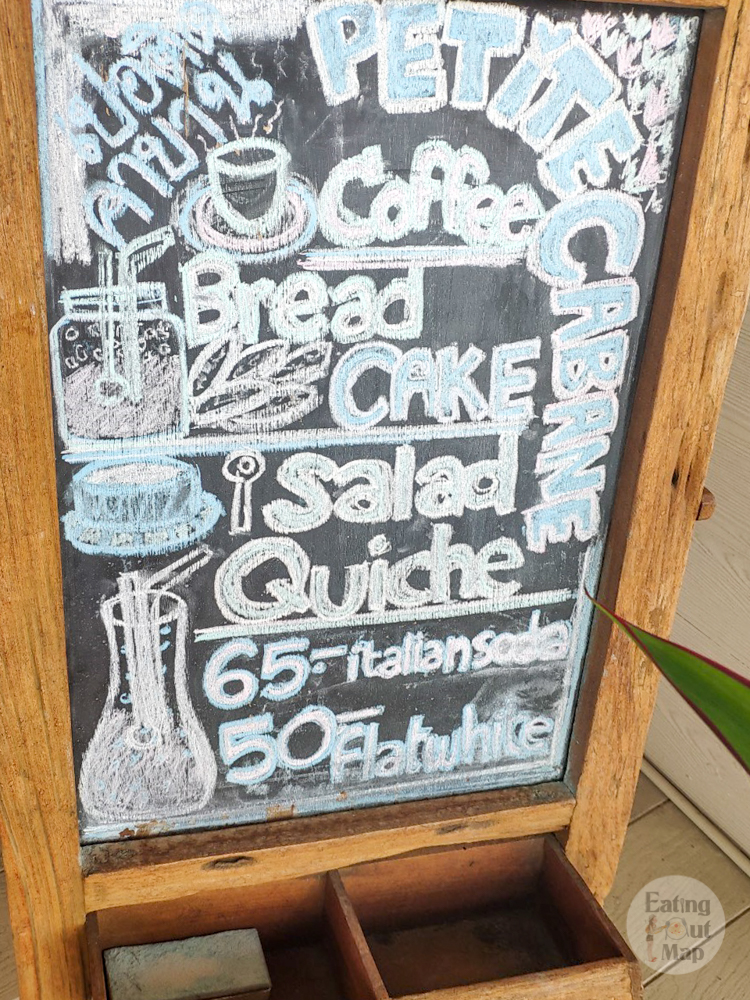 เปอติ
คาบาน
PETITE CABANE
Coffee
Bread
CAKE
salad
Quiche
65.- italian soda
50.- Flat white
Eating
Out
Map